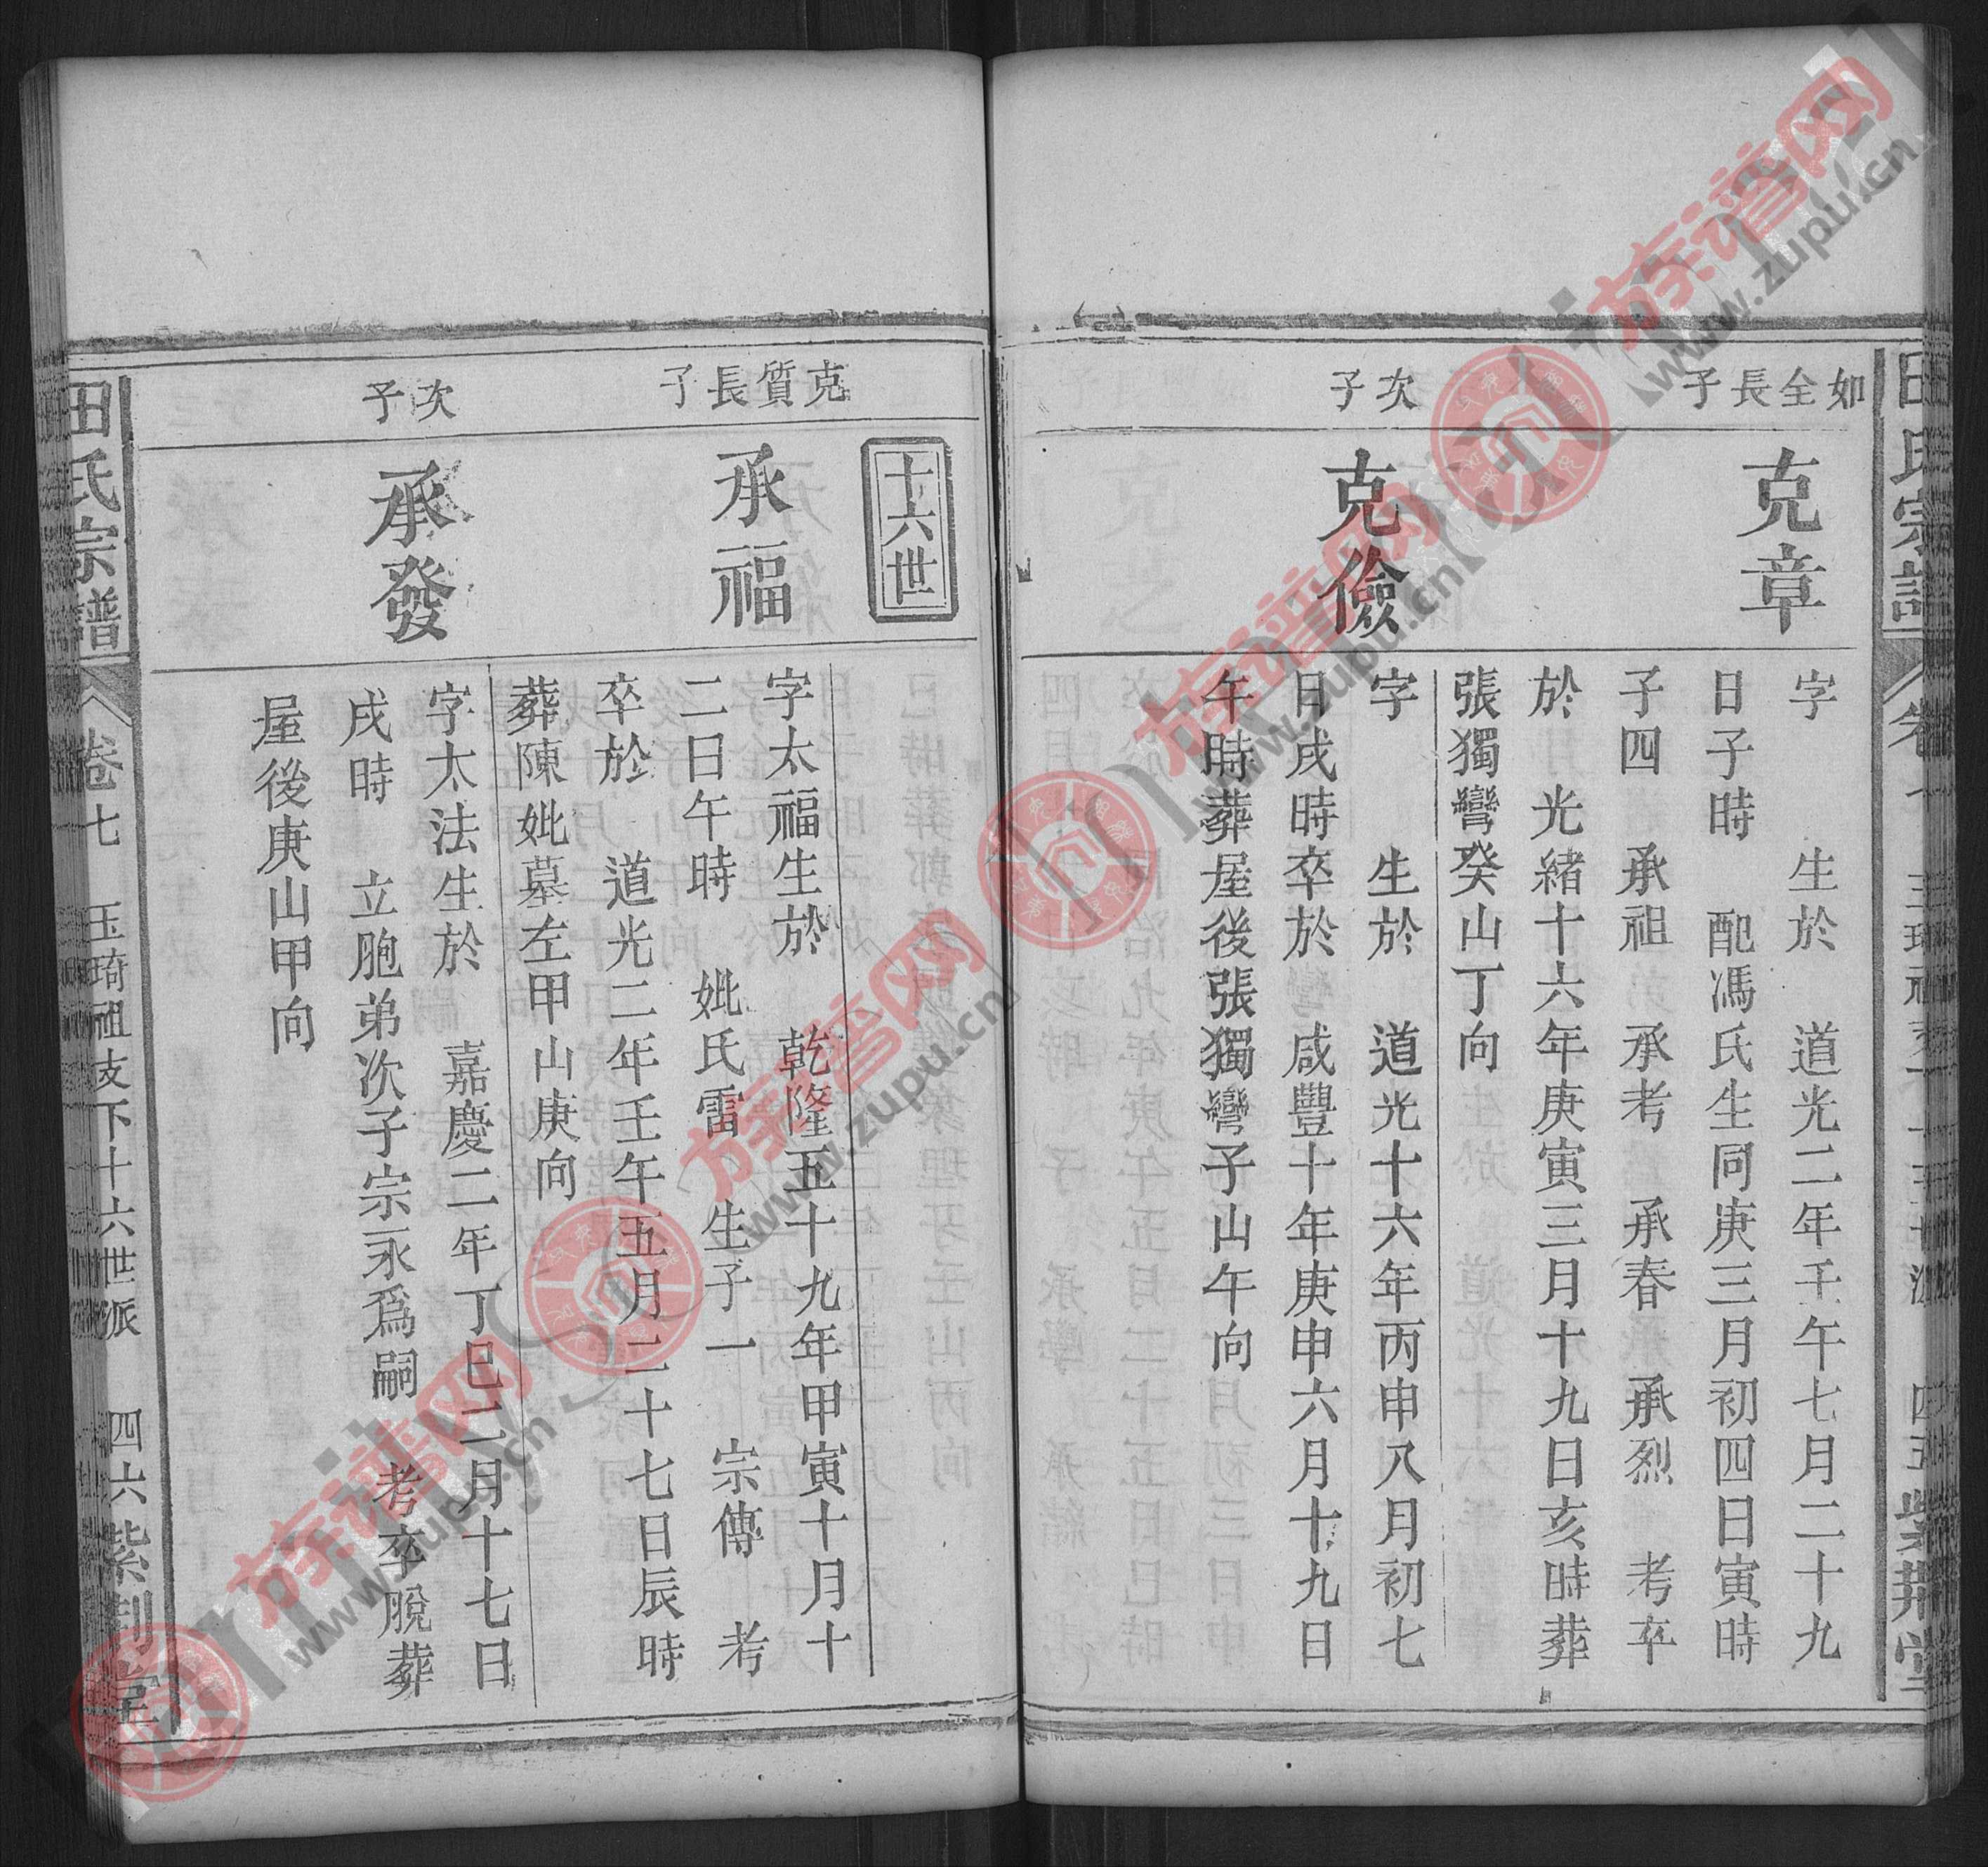 田氏宗譜
如全長子
克章
字 生於 道光二年壬午七月二十九
日子時 配馮氏生同庚三月初四日寅時
子四 承祖 承考 承春 承烈 考卒
於 光緒十六年庚寅三月十九日亥時葬
張獨彎癸山丁向
次子
克儉
字 生於 道光十六年丙申八月初七
日戌時卒於 咸豐十年庚申六月十九日
午時葬屋後張獨彎子山午向
四五 紫荊堂
十六世
克質長子
承福
字太福生於 乾隆五十九年甲寅十月十
二日午時 妣氏雷 生子一 宗傳 考
卒於 道光二年壬午五月二十七日辰時
葬陳妣墓左甲山庚向
次子
承發
字太法生於 嘉慶二年丁巳二月十七日
戌時 立胞弟次子宗永爲嗣 考卒脫葬
屋後庚山甲向
田氏宗譜 卷七 玉琦祖支下十六世派 四六 紫荊堂
族谱网
www.zupu.cn
族谱网
www.zupu.cn
族谱网
www.zupu.cn
族谱网
www.zupu.cn